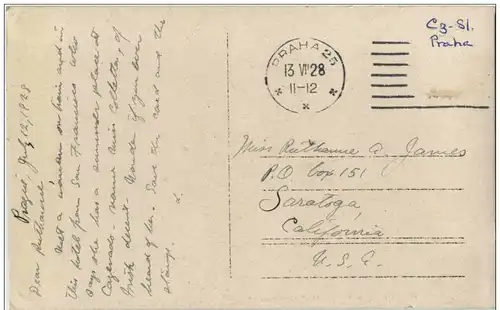 Prague July 12, 1928
Dear Ruthanne
Met a woman on train and in
this hotel from San Francisco who
says she has a summer place at
Cazenado - name Miss
Irish descent. Wonder if you ever
heard of her. Save the card and the
stamp.
L.
PRAHA 25
13 VII 28
11-12
Cz-Sl.
Praha
Miss Ruthanne D. James
P.O. Box 151
Saratoga
California
U.S.A.